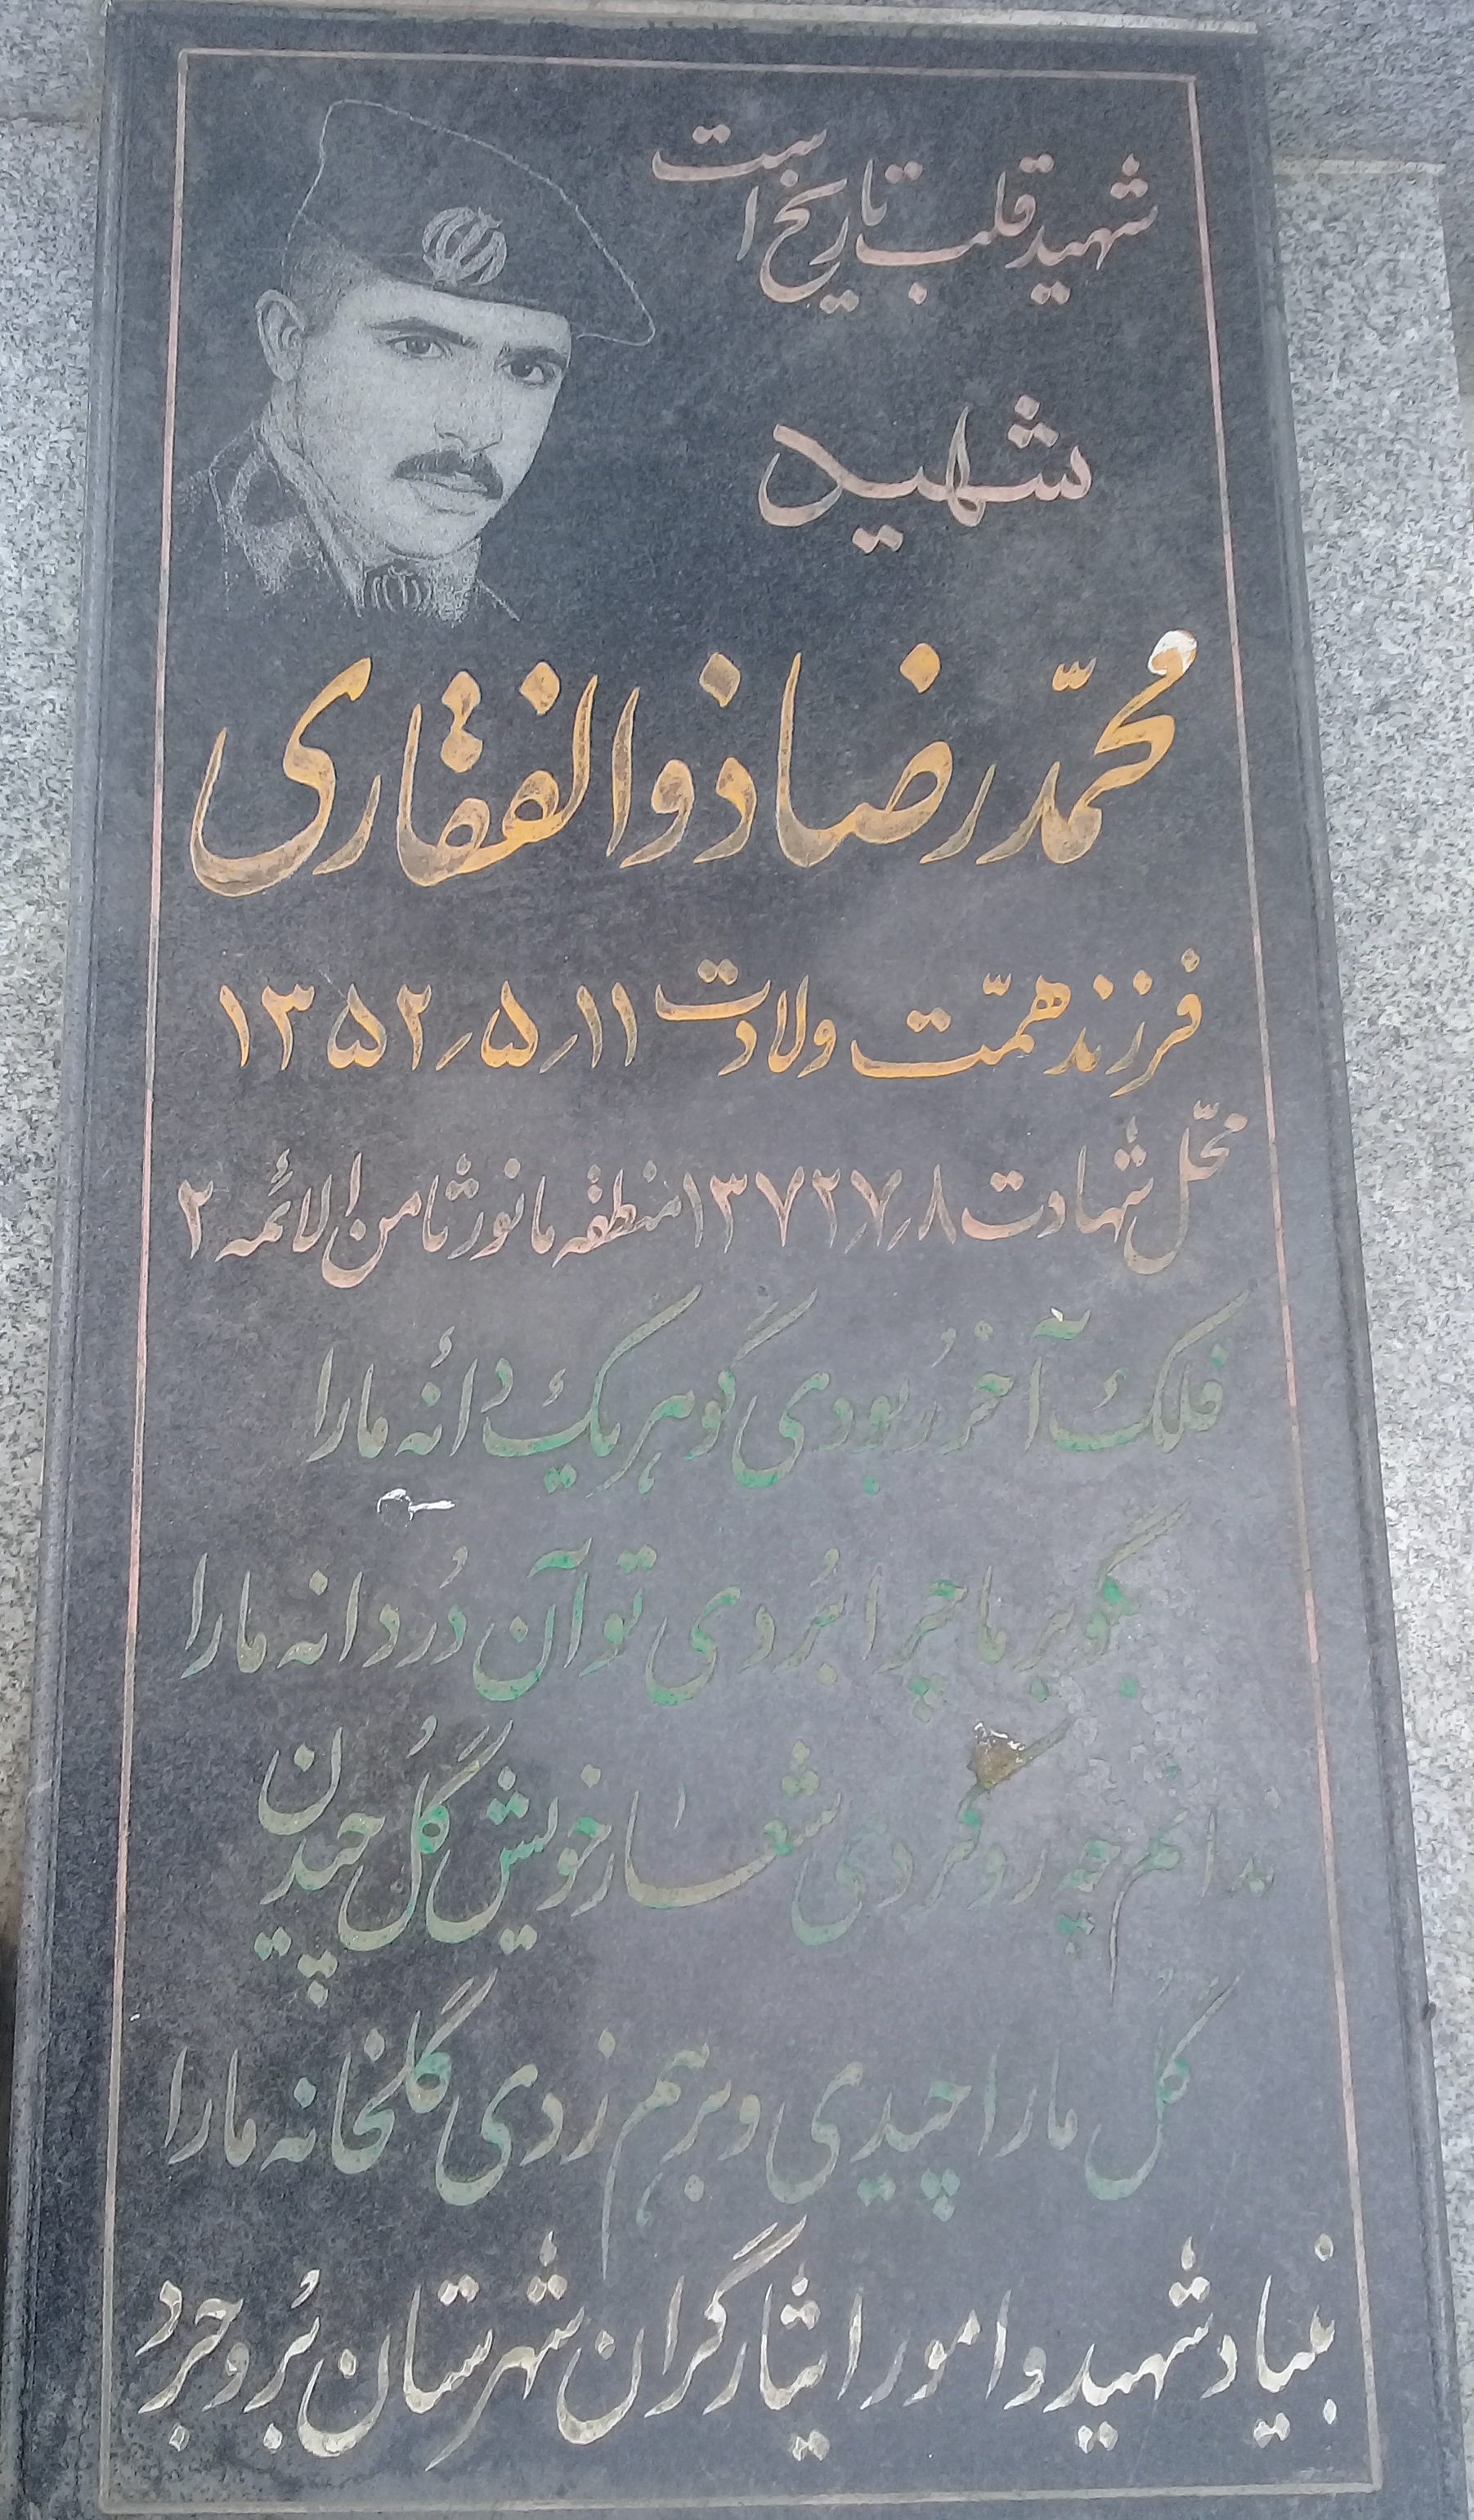 شهید قلب تاریخ است
شهید
محمّد رضا ذوالفقاری
فرزند همّت ولادت ۱۱/۵/۱۳۵۲
محّل شهادت ۸/۷/۱۳۷۲ منطقه مانور ثامن الائمه ۲
فلک آخر رُبودی گوهر یک دانه ما را
بگو بر ما چرا بُردی تو آن دُردانه ما را
ندانم چه رو کردی شعار خویش گُل چیدن
گل ما را چیدی و برهم زدی گلخانه ما را
بنیاد شهید و امور ایثارگران شهرستان بُروجرد